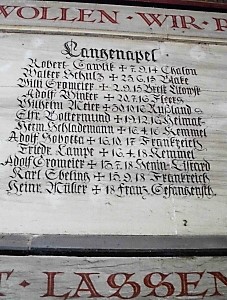 WOLLEN · WIR ·
Langenapel ·
Robert Gawlik + 7.9.14 Chalon
Walter Schulz + 23.6.15 Blake
Wilh Cromeier + 2.9.15 Brest Litowsk
Adolf Winter + 20.7.16 Fleers
Wilhelm Meier + 30.10.16 Rußland
Elfr. Vollermund + 19.12.16 Heimat
Herm. Schlademann + 16.4.18 Kemmel
Adolf + 16.10.17 Frankreich
Friedr. Lampe + 16.4.18 Kemmel
Adolf Cromeier + 15.7.18
Karl Ebeling + 15.18 Frankreich
Heinr. Müller + 18 Franz. Gefangensch.
T · LASSEN